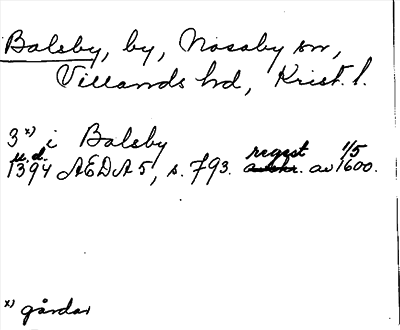 Balsby, by, Nosaby sn,
Villands hd, Krist. l.
3 x) i Balsby
u.d.
1394 AEDA 5, s. 793. regest av 1/5 1600.
x) gårdar